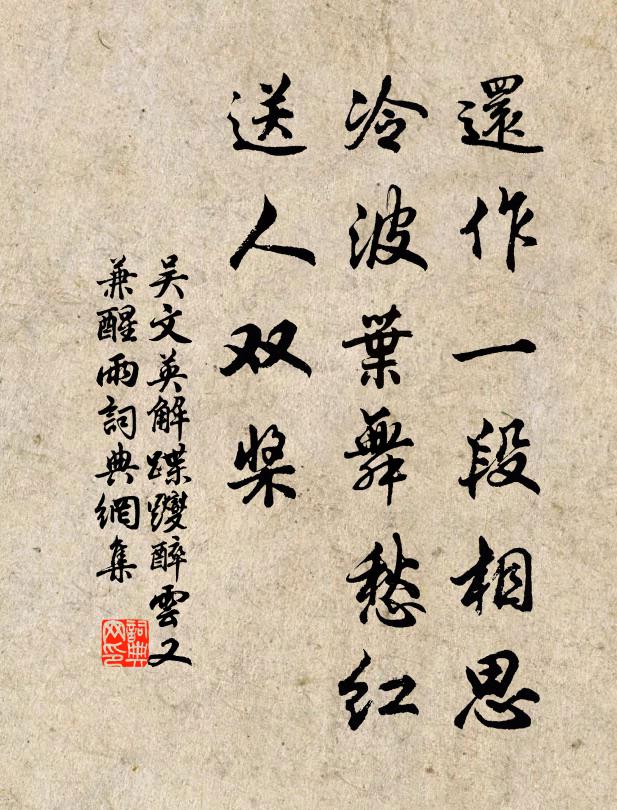 還作一段相思
冷波葉舞愁紅
送人双桨
吴文英解蹀躞醉雲又
兼醒雨詞典網集
詞典网印